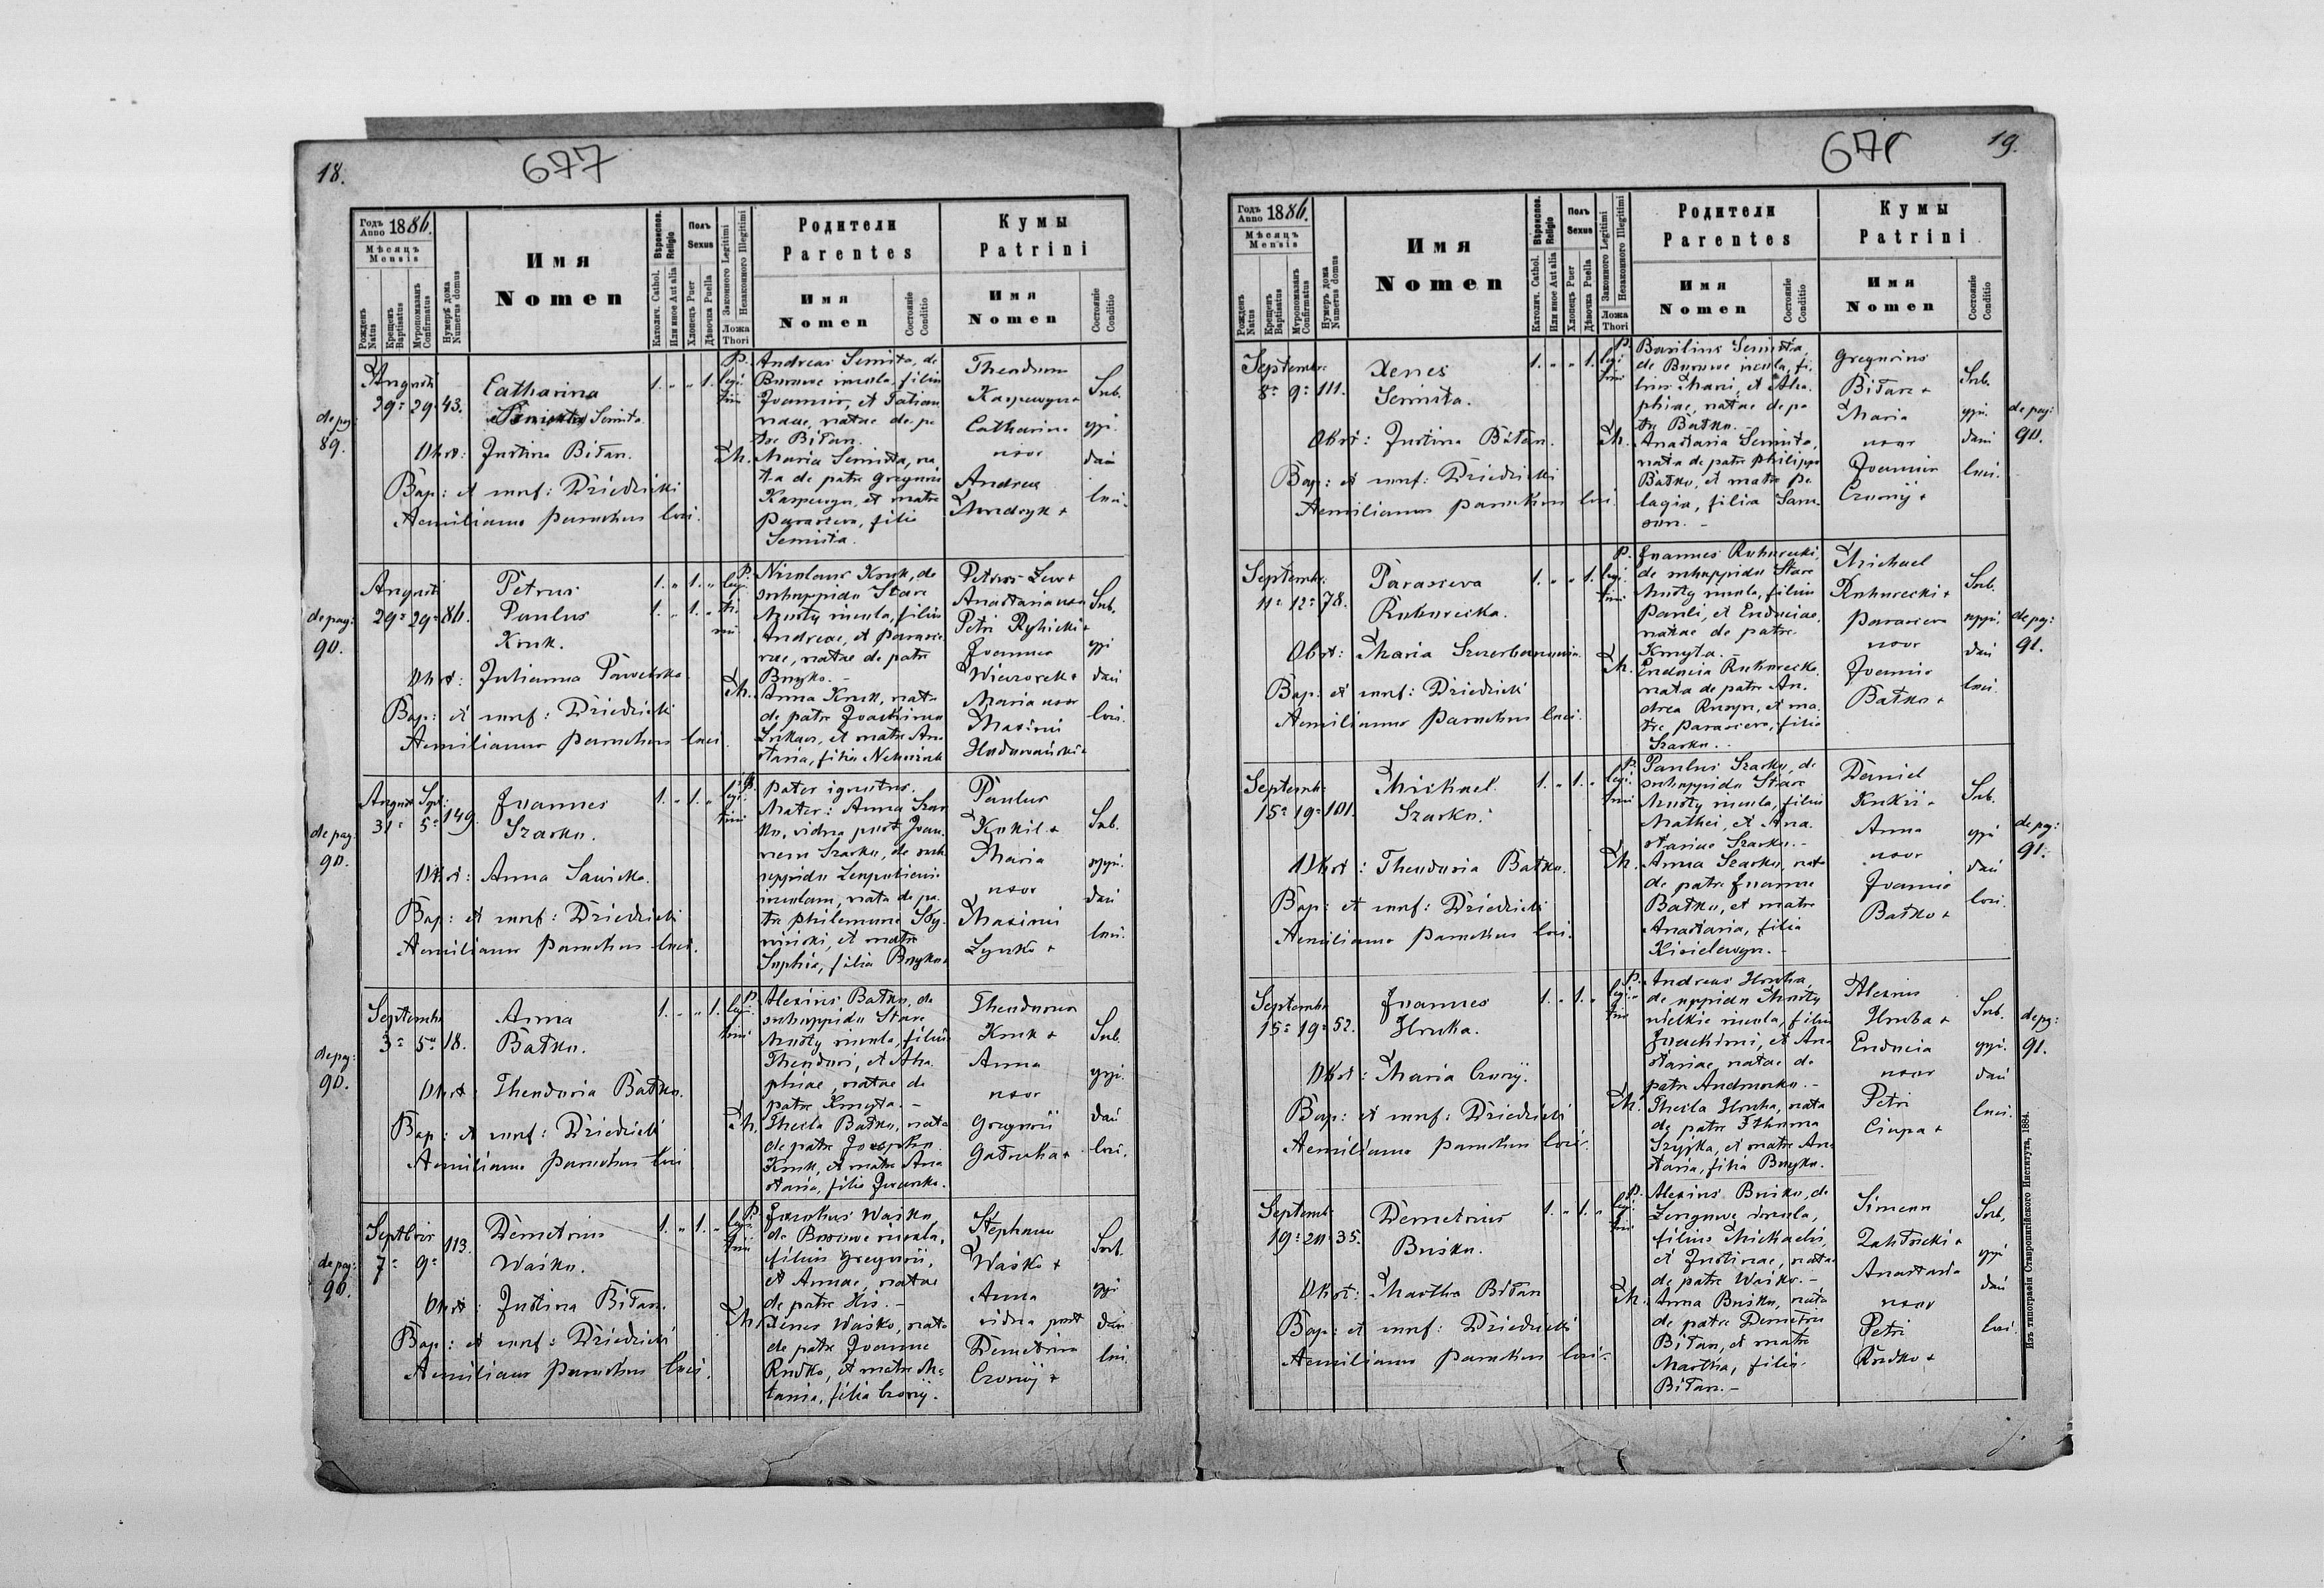 18.
677
Годъ Anno 1886.
Мѣсяцъ
Mensis
Рожденъ Natus
Крещенъ Baptisatus
Мѵропомазанъ Confirmatus
Нумеръ дома Numerus domus
Имя
Nomen
Вѣроиспов. Religio
Католич. Cathol.
Или иное Aut alia
Полъ
Sexus
Хлопецъ Puer
Дѣвочка Puella
Законного Legitimi
Незаконного Illegitimi
Ложа
Thori
Родители
Parentes
Имя
Nomen
Состояніе
Conditio
Кумы
Patrini
Имя
Nomen
Состояніе
Conditio
de pag: 89.
Augusti
29a 29a 43.
Catharina
Semista
Obst: Justina Bitan.
Bap: et conf: Dziedzicki
Aemilianus parochus loci.
1. " " 1. legi
timi
P. Andreas Semista, de
Busowe incola, filius
Joannis, et Tatian
nae, natae de pa
tre Bitan.
M. Maria Semista, na
ta de patre Gregorio
Kaspewyn, et matre
Parasceva, filia
Semista.
Theodorus
Kaspewyn +
Catharina
uxor
Andreae
Sub.
oppi
dani
loci.
de pag: 90.
Augusti
29a 29a 86.
Petrus
Paulus
Kruk.
Obst: Julianna Pawelsko
Bap: et conf: Dziedzicki
Aemilianus parochus loci.
1. " 1. " legi
1. " 1. " ti
mi
P. Nicolaus Kruk, de
suboppido Stare
Miasty incola, filius
Andreae, et Parasce
vae, natae de patre
Buyko. -
M. Anna Kruk, nata
de patre Joachimo
et matre Ana
stasia, filia
Petrus Lew +
Anastasia uxor
Petri Rylicki +
Joannes
Wieczorek +
Maria uxor
Maximi
Sub.
oppi
dani
loci.
de pag: 90.
August. Sept:
31a 5a 149.
Joannes
Szarko.
Obst: Anna Sawicka.
Bap: et conf: Dziedzicki
Aemilianus parochus loci.
1. " 1. " legi
timi
P. Pater ignotus.
Mater: Anna Szar
ko, vidua post Joan
nem Szarko, de sub
oppido
incolam, nata de pa
tre Philemone
et matre
Sophia, filia Buyko
Paulus
Kukil +
Maria
uxor
Maximi
Lynko +
Sub.
oppi
dani
loci.
de pag: 90.
Septembr
3a 5a 18.
Anna
Batko.
Obst: Theodoria Batko.
Bap: et conf: Dziedzicki
Aemilianus parochus loci
1. " " 1. legi
timi
P. Alexius Batko, de
suboppido Stare
Miasty incola, filius
Theodori, et Aha
phiae, natae de
patre Kmyta. -
M. Thecla Batko, nata
de patre Josepho
Kruk, et matre Ana
stasia, filia Iwasko.
Theodorus
Kruk +
Anna
uxor
Gregorii
Gatuszka +
Sub.
oppi
dani
loci.
de pag: 90.
Septbris
7a 9a 113.
Demetrius
Waśko.
Obst: Justina Bitan.
Bap: et conf: Dziedzicki
Aemilianus parochus loci.
1. " 1. " legi
timi
P. Jacobus Waśko
de Busowe incola,
filius Gregorii,
et Annae, natae
de patre His. -
M. Xenes Waśko, nata
de patre Joanne
Rudko, et matre Me
lania, filia Czornij.
Stephanus
Waśko +
Anna
vidua post
Demetrium
Czornij +
Sub.
oppi
dani
loci.
19.
678
Годъ Anno 1886.
Мѣсяцъ
Mensis
Рожденъ Natus
Крещенъ Baptisatus
Мѵропомазанъ Confirmatus
Нумеръ дома Numerus domus
Имя
Nomen
Вѣроиспов. Religio
Католич. Cathol.
Или иное Aut alia
Полъ
Sexus
Хлопецъ Puer
Дѣвочка Puella
Законного Legitimi
Незаконного Illegitimi
Ложа
Thori
Родители
Parentes
Имя
Nomen
Состояніе
Conditio
Кумы
Patrini
Имя
Nomen
Состояніе
Conditio
Septembr:
8a 9a 111.
Xenes
Semista.
Obst: Justina Bitan.
Bap: et conf: Dziedzicki
Aemilianus parochus loci.
1. " " 1. legi
timi
P. Basilius Semista,
de Busowe incola, fi
lius Mani, et Aha
phiae, natae de pa
tre Batko. -
M. Anastasia Semista,
nata de patre Philippo
Batko, et matre Pe
lagia, filia Sam
son. -
Gregorius
Bitan +
Maria
uxor
Joannis
Czornij +
Sub.
oppi.
dani
loci.
de pag: 90.
Septembr:
11a 12a 78.
Parasceva
Rukurecka.
Obst: Maria
Bap: et conf: Dziedzicki
Aemilianus parochus loci.
1. " " 1. legi
timi
P. Joannes Rukurecki,
de suboppido Stare
Miasty incola, filius
Pauli, et Eudociae,
natae de patre
Kmyta. -
M. Eudocia Rukurecka
nata de patre An
drea Rusyn, et ma
tre Parasceva, filia
Szarko. -
Michael
Rukurecki +
Parasceva
uxor
Joannis
Batko +
Sub.
oppi.
dani
loci.
de pag: 91.
Septemb:
15a 19a 101.
Michael
Szarko.
Obst: Theodoria Batko.
Bap: et conf: Dziedzicki
Aemilianus parochus loci.
1. " 1. " legi
timi
P. Paulus Szarko, de
suboppido Stare
Miasty incola, filius
Mathei, et Ana
stasiae Szarko. -
M. Anna Szarko, nata
de patre Joanne
Batko, et matre
Anastasia, filia
Kisielewyn. -
Daniel
Kukil +
Anna
uxor
Joannis
Batko +
Sub.
oppi
dani
loci.
de pag: 91.
Septembr
15a 19a 52.
Joannes
Hruba.
Obst: Maria Czornij.
Bap: et conf: Dziedzicki
Aemilianus parochus loci.
1. " 1. " legi
timi
P. Andreas Hruba,
de oppido Mosty
wielkie incola, filius
Joachimi, et Ana
stasiae, natae de
patre
M. Thecla Hruba, nata
de patre Thoma
et matre Ana
stasia, filia Buyko.
Alexius
Hruba +
Eudocia
uxor
Petri
Ciupa +
Sub.
oppi.
dani
loci.
de pag: 91.
Septemb:
19a 20 35.
Demetrius
Busko.
Obst: Martha Bitan
Bap: et conf: Dziedzicki
Aemilianus parochus loci.
1. " 1. " legi
timi
P. Alexius Busko, de
incola,
filius Michaelis,
et Justinae, natae
de patre Waśko. -
M. Anna Busko, nata
de patre Demetrio
Bitan, et matre
Martha, filia
Bitan. -
Simeon
Anastasia
uxor
Petri
Rudko +
Sub.
oppi
dani
loci.
Изъ типографіи Ставропигійского Института, 1884.